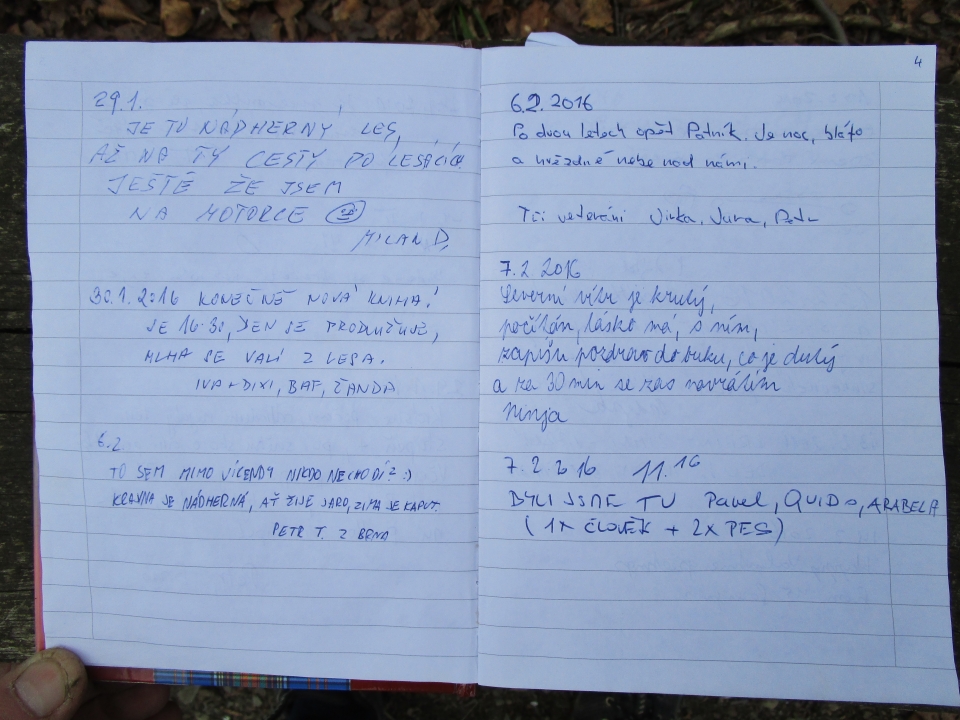 29.1.
JE TU NÁDHERNÝ LES,
AŽ NA TY CESTY PO LESÁCÍCH
JEŠTĚ ŽE JSEM
NA MOTORCE
MILAN D.
30.1.2016 KONEČNĚ NOVÁ KNIHA!
JE 16.30, DEN SE PRODLUŽUJE,
MLHA SE VALÍ Z LESA.
IVA + DIXI, BAF, ŽANDA
6.2.
TO SEM MIMO VÍKENDY NIKDO NECHODÍ? :)
KRAJINA JE NÁDHERNÁ, AŤ ŽIJE JARO, ZIMA JE KAPUT.
PETR T. Z BRNA
4
6.2. 2016
Po dvou letech opět Potník. Je noc, bláto
a hvězdné nebe nad námi.
Tři veteráni Jirka, Jura, Petr
7.2. 2016
Severní vítr je krutý,
počítám, lásko má, s ním,
zapíšu pozdrav do buku, co je dutý
a za 30 min se zas navrátím
Ninja
7.2 2016 11.16
BYLI JSME TU Pavel, QUIDO, ARABELA
(1X ČLOVĚK + 2X PES)